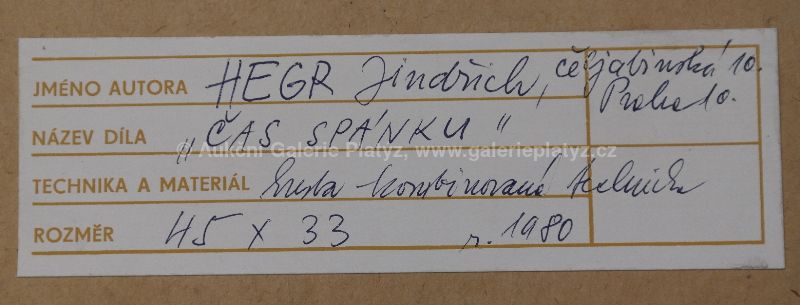 JMÉNO AUTORA HEGR Jindřich, Čeljabinská 10.
Praha 10.
NÁZEV DÍLA „ČAS SPÁNKU"
© Aukční Galerie Platýz, www.galerieplatyz.cz
TECHNIKA A MATERIÁL kresba kombinovaná technika
ROZMĚR 45 x 33 r. 1980